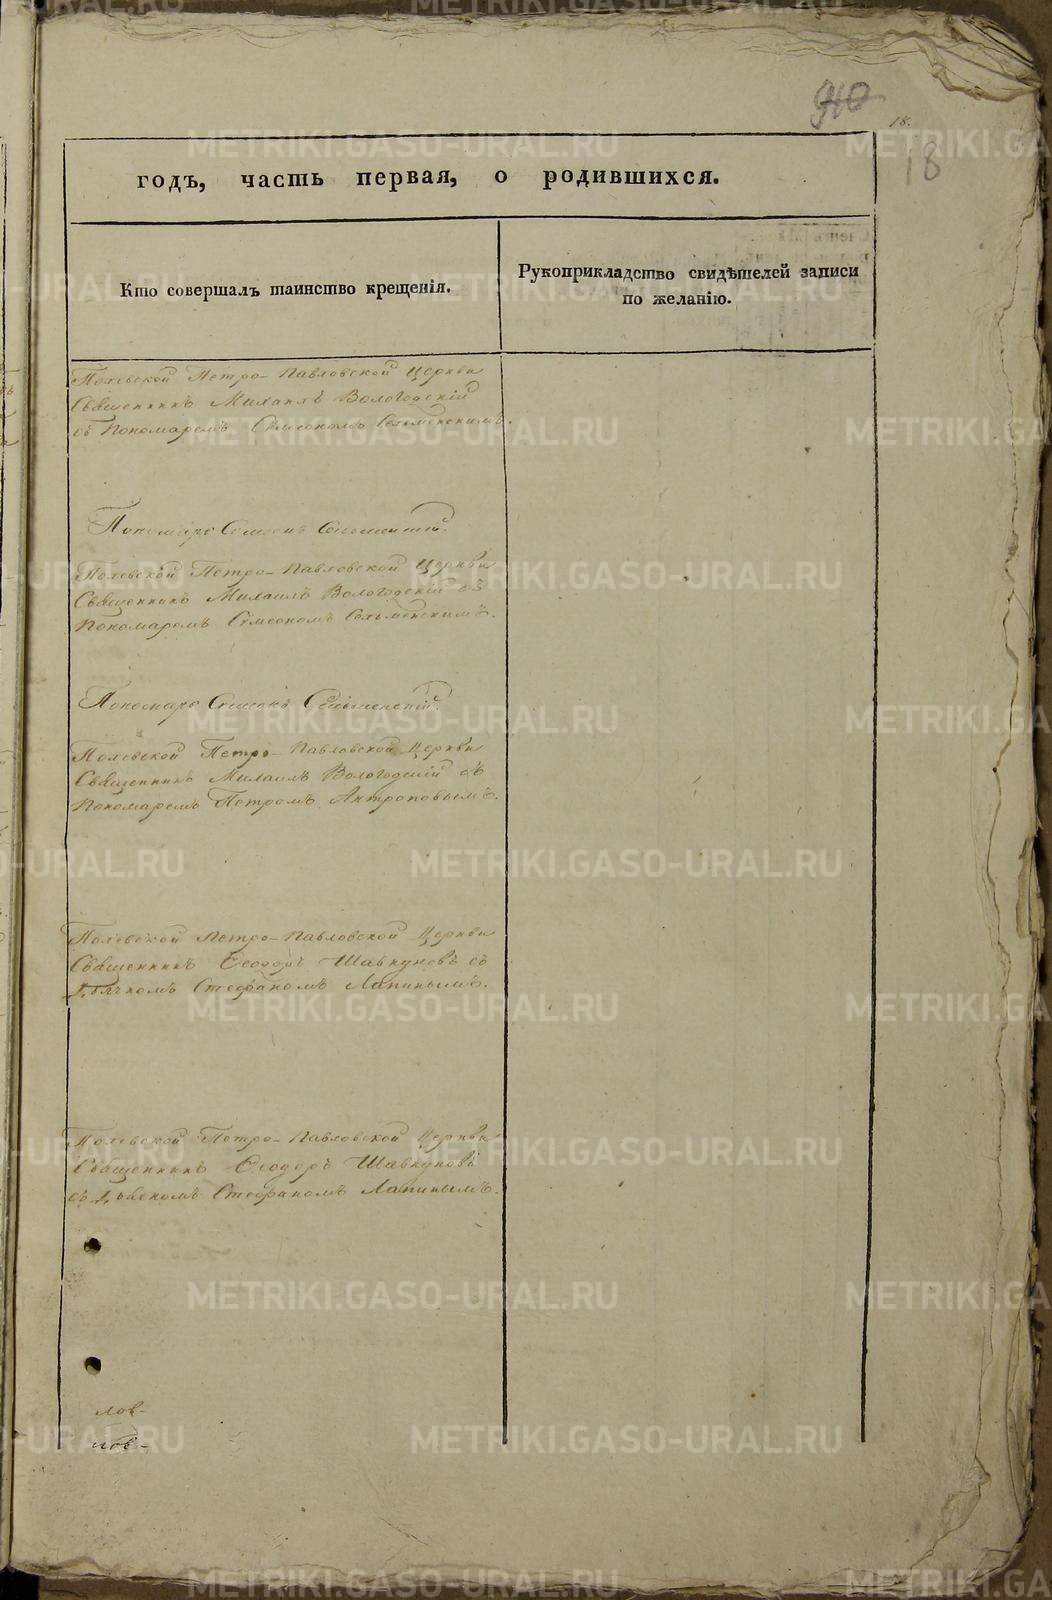 940
18.
18
годъ, часть первая, о родившихся.
Кто совершалъ таинство крещенія.
Рукоприкладство свидѣтелей записи
по желанію.
Полевской Петро-Павловской Церкви
Священникъ Михаилъ Вологодскій
съ Пономаремъ Семеономъ Сельменскимъ.
Пономарь Семенъ Сельменскій.
Полевской Петро-Павловской Церкви
Священникъ Михаилъ Вологодскій съ
Пономаремъ Семеономъ Сельменскимъ.
Пономарь Семенъ Сельменскій.
Полевской Петро-Павловской Церкви
Священникъ Михаилъ Вологодскій съ
Пономаремъ Петромъ Антроповымъ.
Полевской Петро-Павловской Церкви
Священникъ Ѳеодоръ Шавкуновъ съ
Дьячкомъ Стефаномъ Лапинымъ.
Полевской Петро-Павловской Церкви
Священникъ Ѳеодоръ Шавкуновъ
съ Стефаномъ Лапинымъ.
лов-
лов-
METRIKI.GASO-URAL.RU